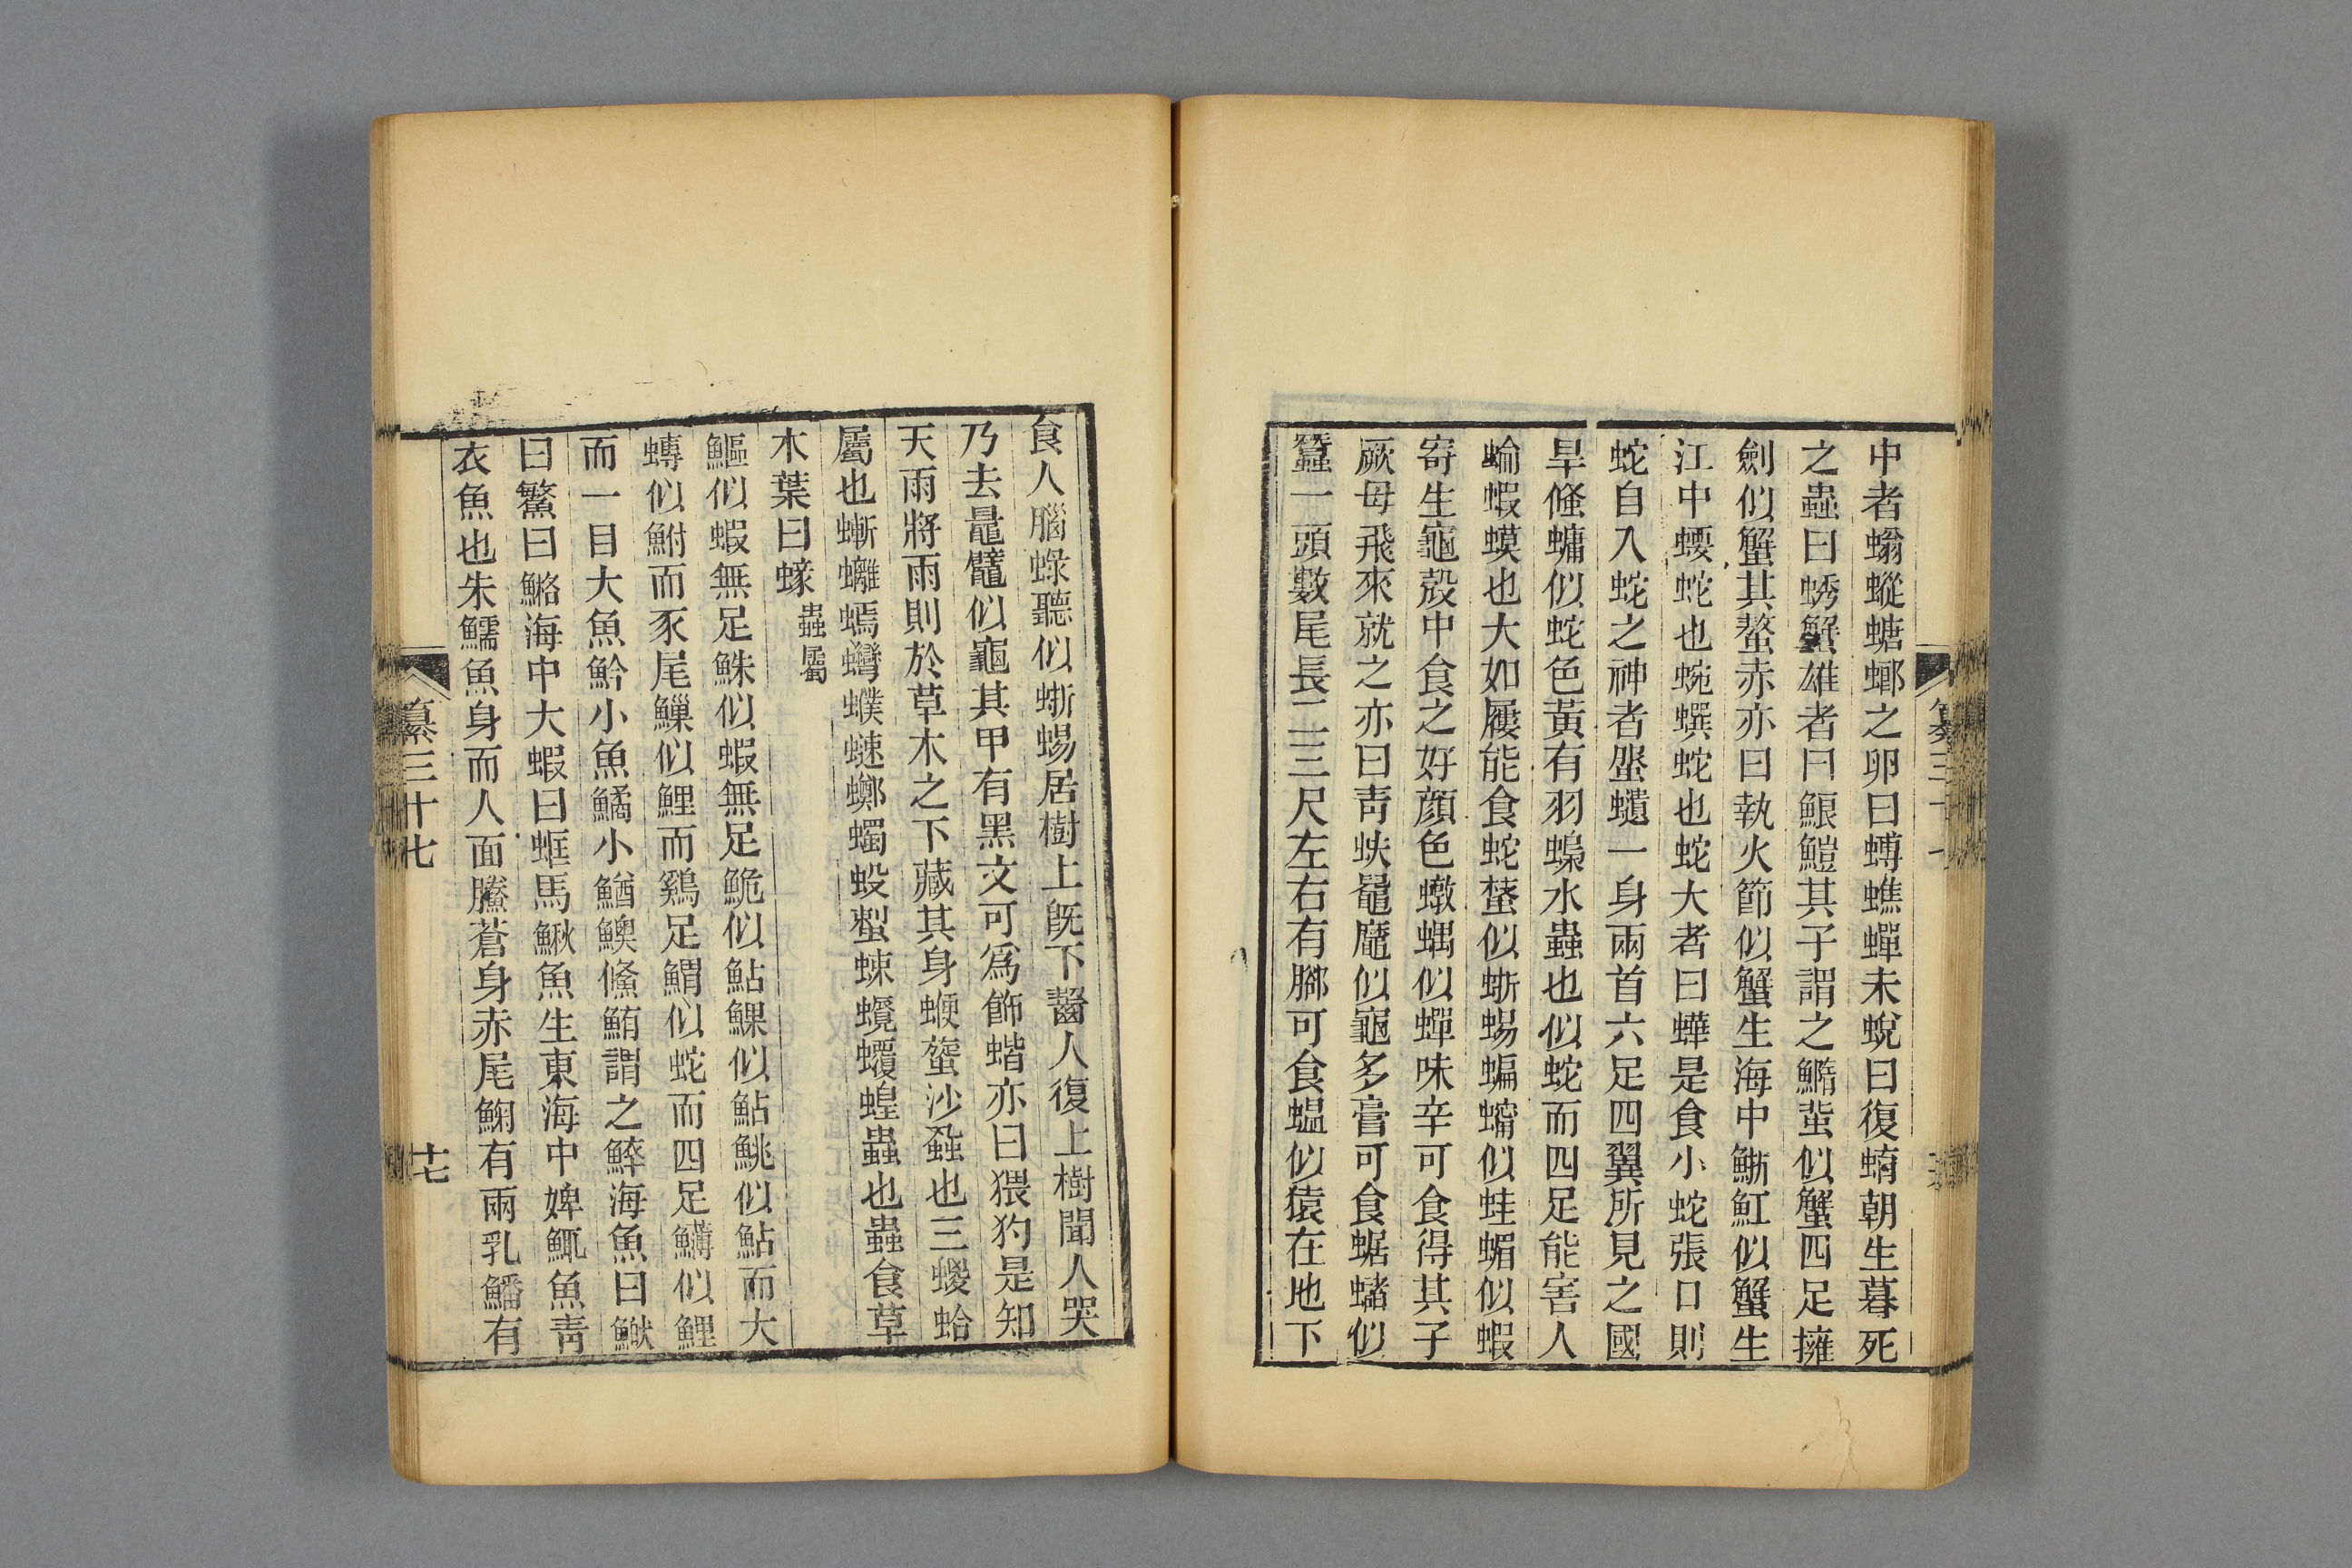 中者螉蜙螗蜋之卵曰䗚蟭蟬未蛻曰復蜟朝生暮死
之蟲曰蜏蟹雄者曰䱡鎧其子謂之䲊蜚似蟹四足擁
劍似蟹其螯赤亦曰執火節似蟹生海中魵魟似蟹生
江中蝘蛇也蜿蟤蛇也蛇大者曰蟒是食小蛇張口則
蛇自入蛇之神者螱䗽一身兩首六足四翼所見之國
旱鯈䗤似蛇色黃有羽蝝水蟲也似蛇而四足能害人
蝓蝦蟆也大如履能食蛇䗩似蜥蜴蝙蠗似蛙蝞似蝦
寄生龜殼中食之好顏色蠍蝺似蟬味辛可食得其子
厥母飛來就之亦曰青蚨鼂魔似龜多膏可食蜛蠩似
蠶一頭數尾長二三尺左右有腳可食蝹似猿在地下
纂三十七
食人腦蝝聽似蜥蜴居樹上旣下齧人復上樹聞人哭
乃去鼂鼊似龜其甲有黑文可爲飾蝔亦曰猥犳是知
天雨將雨則於草木之下藏其身蝷䗩沙蝨也三蝬蛤
屬也蟖蠄蟜蠻蟔蟽螂蠋蛟蛪蝀蠼蠼蝗蟲也蟲食草
木葉曰蟓 蟲屬
鰸似蝦無足鮢似蝦無足鮠似鮎鰥似鮎鮡似鮎而大
鱄似鮒而豕尾鱲似鯉而鷄足鰨似蛇而四足鱄似鯉
而一目大魚魿小魚鱊小鰌鱮鯈鮪謂之鯶海魚曰鮲
曰䲙曰鮥海中大蝦曰蚟馬鰍魚生東海中婢䱍魚靑
衣魚也朱鱬魚身而人面䲢蒼身赤尾鮈有兩乳鱕有
纂三十七
十七